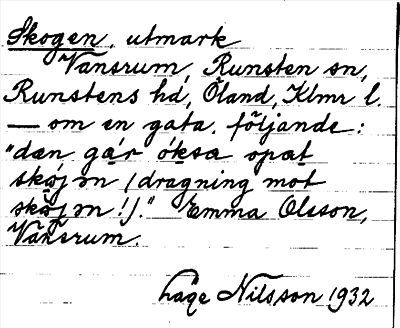 Skogen, utmark
Vanserum, Runsten sn,
Runstens hd, Öland, Klmr l.
— om en gata. följande:
"dän gá̊r öksa opat
skøj ɘn (dragning mot
skøj ɘn!)." Emma Olsson,
Vanserum.
Låge Nilsson 1932